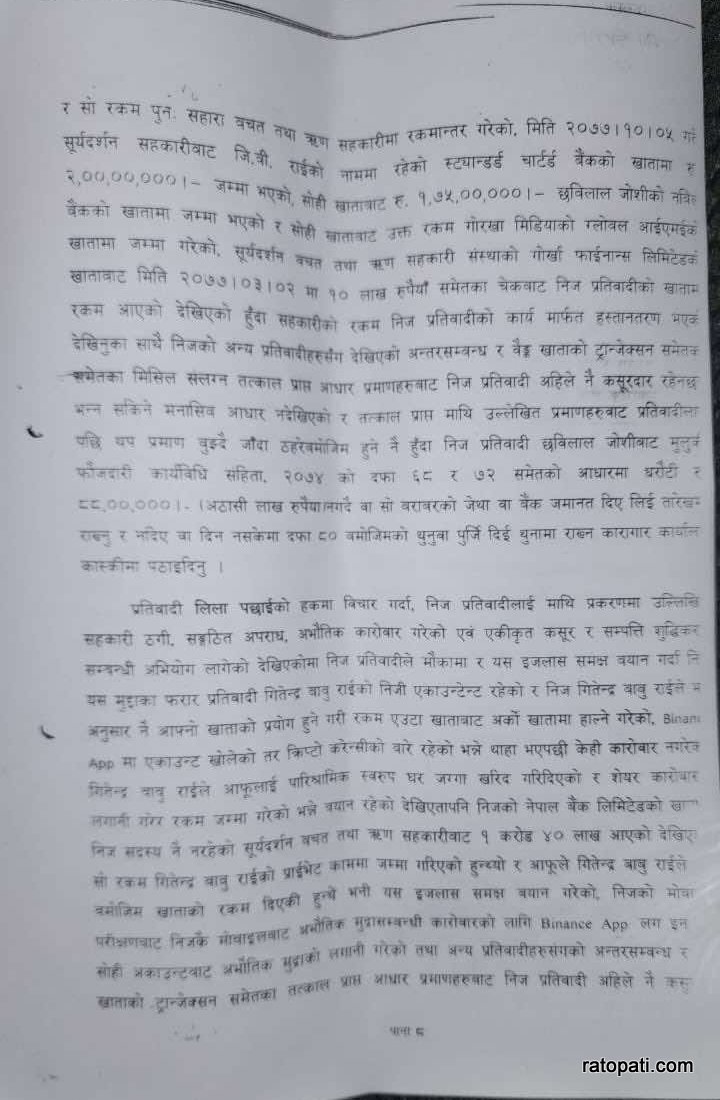 र सो रकम पुनः सहारा बचत तथा ऋण सहकारीमा रकमान्तर गरेको, मिति २०७७।१०।०५ गते
सूर्यदर्शन सहकारीबाट जि.बी. राईको नाममा रहेको स्ट्याण्डर्ड चार्टर्ड बैंकको खातामा रु
२,००,००,०००।- जम्मा भएको, सोही खाताबाट रु. १,७५,००,०००।- छविलाल जोशीको नबिल
बैंकको खातामा जम्मा भएको र सोही खाताबाट उक्त रकम गोरखा मिडियाको ग्लोबल आईएमईको
खातामा जम्मा गरेको, सूर्यदर्शन बचत तथा ऋण सहकारी संस्थाको गोर्खा फाईनान्स लिमिटेडको
खाताबाट मिति २०७७।०३।०२ मा १० लाख रुपैयाँ समेतका चेकबाट निज प्रतिवादीको खाताम
रकम आएको देखिएको हुँदा सहकारीको रकम निज प्रतिवादीको कार्य मार्फत हस्तानतरण भएक
देखिनुका साथै निजको अन्य प्रतिवादीहरुसँग देखिएको अन्तरसम्बन्ध र बैङ्क खाताको ट्रान्जेक्सन समेतक
समेतका मिसिल संलग्न तत्काल प्राप्त आधार प्रमाणहरुबाट निज प्रतिवादी अहिले नै कसूरदार रहेनछ
भन्न सकिने मनासिव आधार नदेखिएको र तत्काल प्राप्त माथि उल्लेखित प्रमाणहरुबाट प्रतिवादीला
पछि थप प्रमाण बुझ्दै जाँदा ठहरेबमोजिम हुने नै हुँदा निज प्रतिवादी छविलाल जोशीबाट मुलुक
फौजदारी कार्यविधि संहिता, २०७४ को दफा ६८ र ७२ समेतको आधारमा धरौटी र
८८,००,०००।- (अठासी लाख रुपैया)नगदै वा सो बराबरको जेथा वा बैंक जमानत दिए लिई तारेखम
राख्नु र नदिए वा दिन नसकेमा दफा ८० बमोजिमको थुनुवा पुर्जि दिई थुनामा राख्न कारागार कार्याल
कास्कीमा पठाइदिनु ।
प्रतिवादी लिला पछाईको हकमा विचार गर्दा, निज प्रतिवादीलाई माथि प्रकरणमा उल्लिखि
सहकारी ठगी, सङ्गठित अपराध, अभौतिक कारोबार गरेको एवं एकीकृत कसूर र सम्पत्ति शुद्धिकर
सम्बन्धी अभियोग लागेको देखिएकोमा निज प्रतिवादीले मौकामा र यस इजलास समक्ष बयान गर्दा नि
यस मुद्दाका फरार प्रतिवादी गितेन्द्र बाबु राईको निजी एकाउन्टेन्ट रहेको र निज गितेन्द्र बाबु राईले
अनुसार नै आफ्नो खाताको प्रयोग हुने गरी रकम एउटा खाताबाट अर्को खातामा हाल्ने गरेको, Binanc
App मा एकाउन्ट खोलेको तर क्रिप्टो करेन्सीको बारे रहेको भन्ने थाहा भएपछी केही कारोबार नगरेक
गितेन्द्र बाबु राईले आफूलाई पारिश्रामिक स्वरुप घर जग्गा खरिद गरिदिएको र शेयर कारोबार
लगानी गरेर रकम जम्मा गरेको भन्ने बयान रहेको देखिएतापनि निजको नेपाल बैंक लिमिटेडको खा
निज सदस्य नै नरहेको सूर्यदर्शन बचत तथा ऋण सहकारीबाट १ करोड ४० लाख आएको देखिए
सो रकम गितेन्द्र बाबु राईको प्राईभेट काममा जम्मा गरिएको हुन्थ्यो र आफूले गितेन्द्र बाबु राईले
बमोजिम खाताको रकम दिएकी हुन्थे भनी यस इजलास समक्ष बयान गरेको, निजको मोबा
परीक्षणबाट निजकै मोबाइलबाट अभौतिक मुद्रासम्बन्धी कारोबारको लागि Binance App लग इन
सोही अकाउन्टबाट अभौतिक मुद्राको लगानी गरेको तथा अन्य प्रतिवादीहरुसंगको अन्तरसम्बन्ध र
खाताको ट्रान्जेक्सन समेतका तत्काल प्राप्त आधार प्रमाणहरुबाट निज प्रतिवादी अहिले नै कसु
पाना ८
ratopati.com